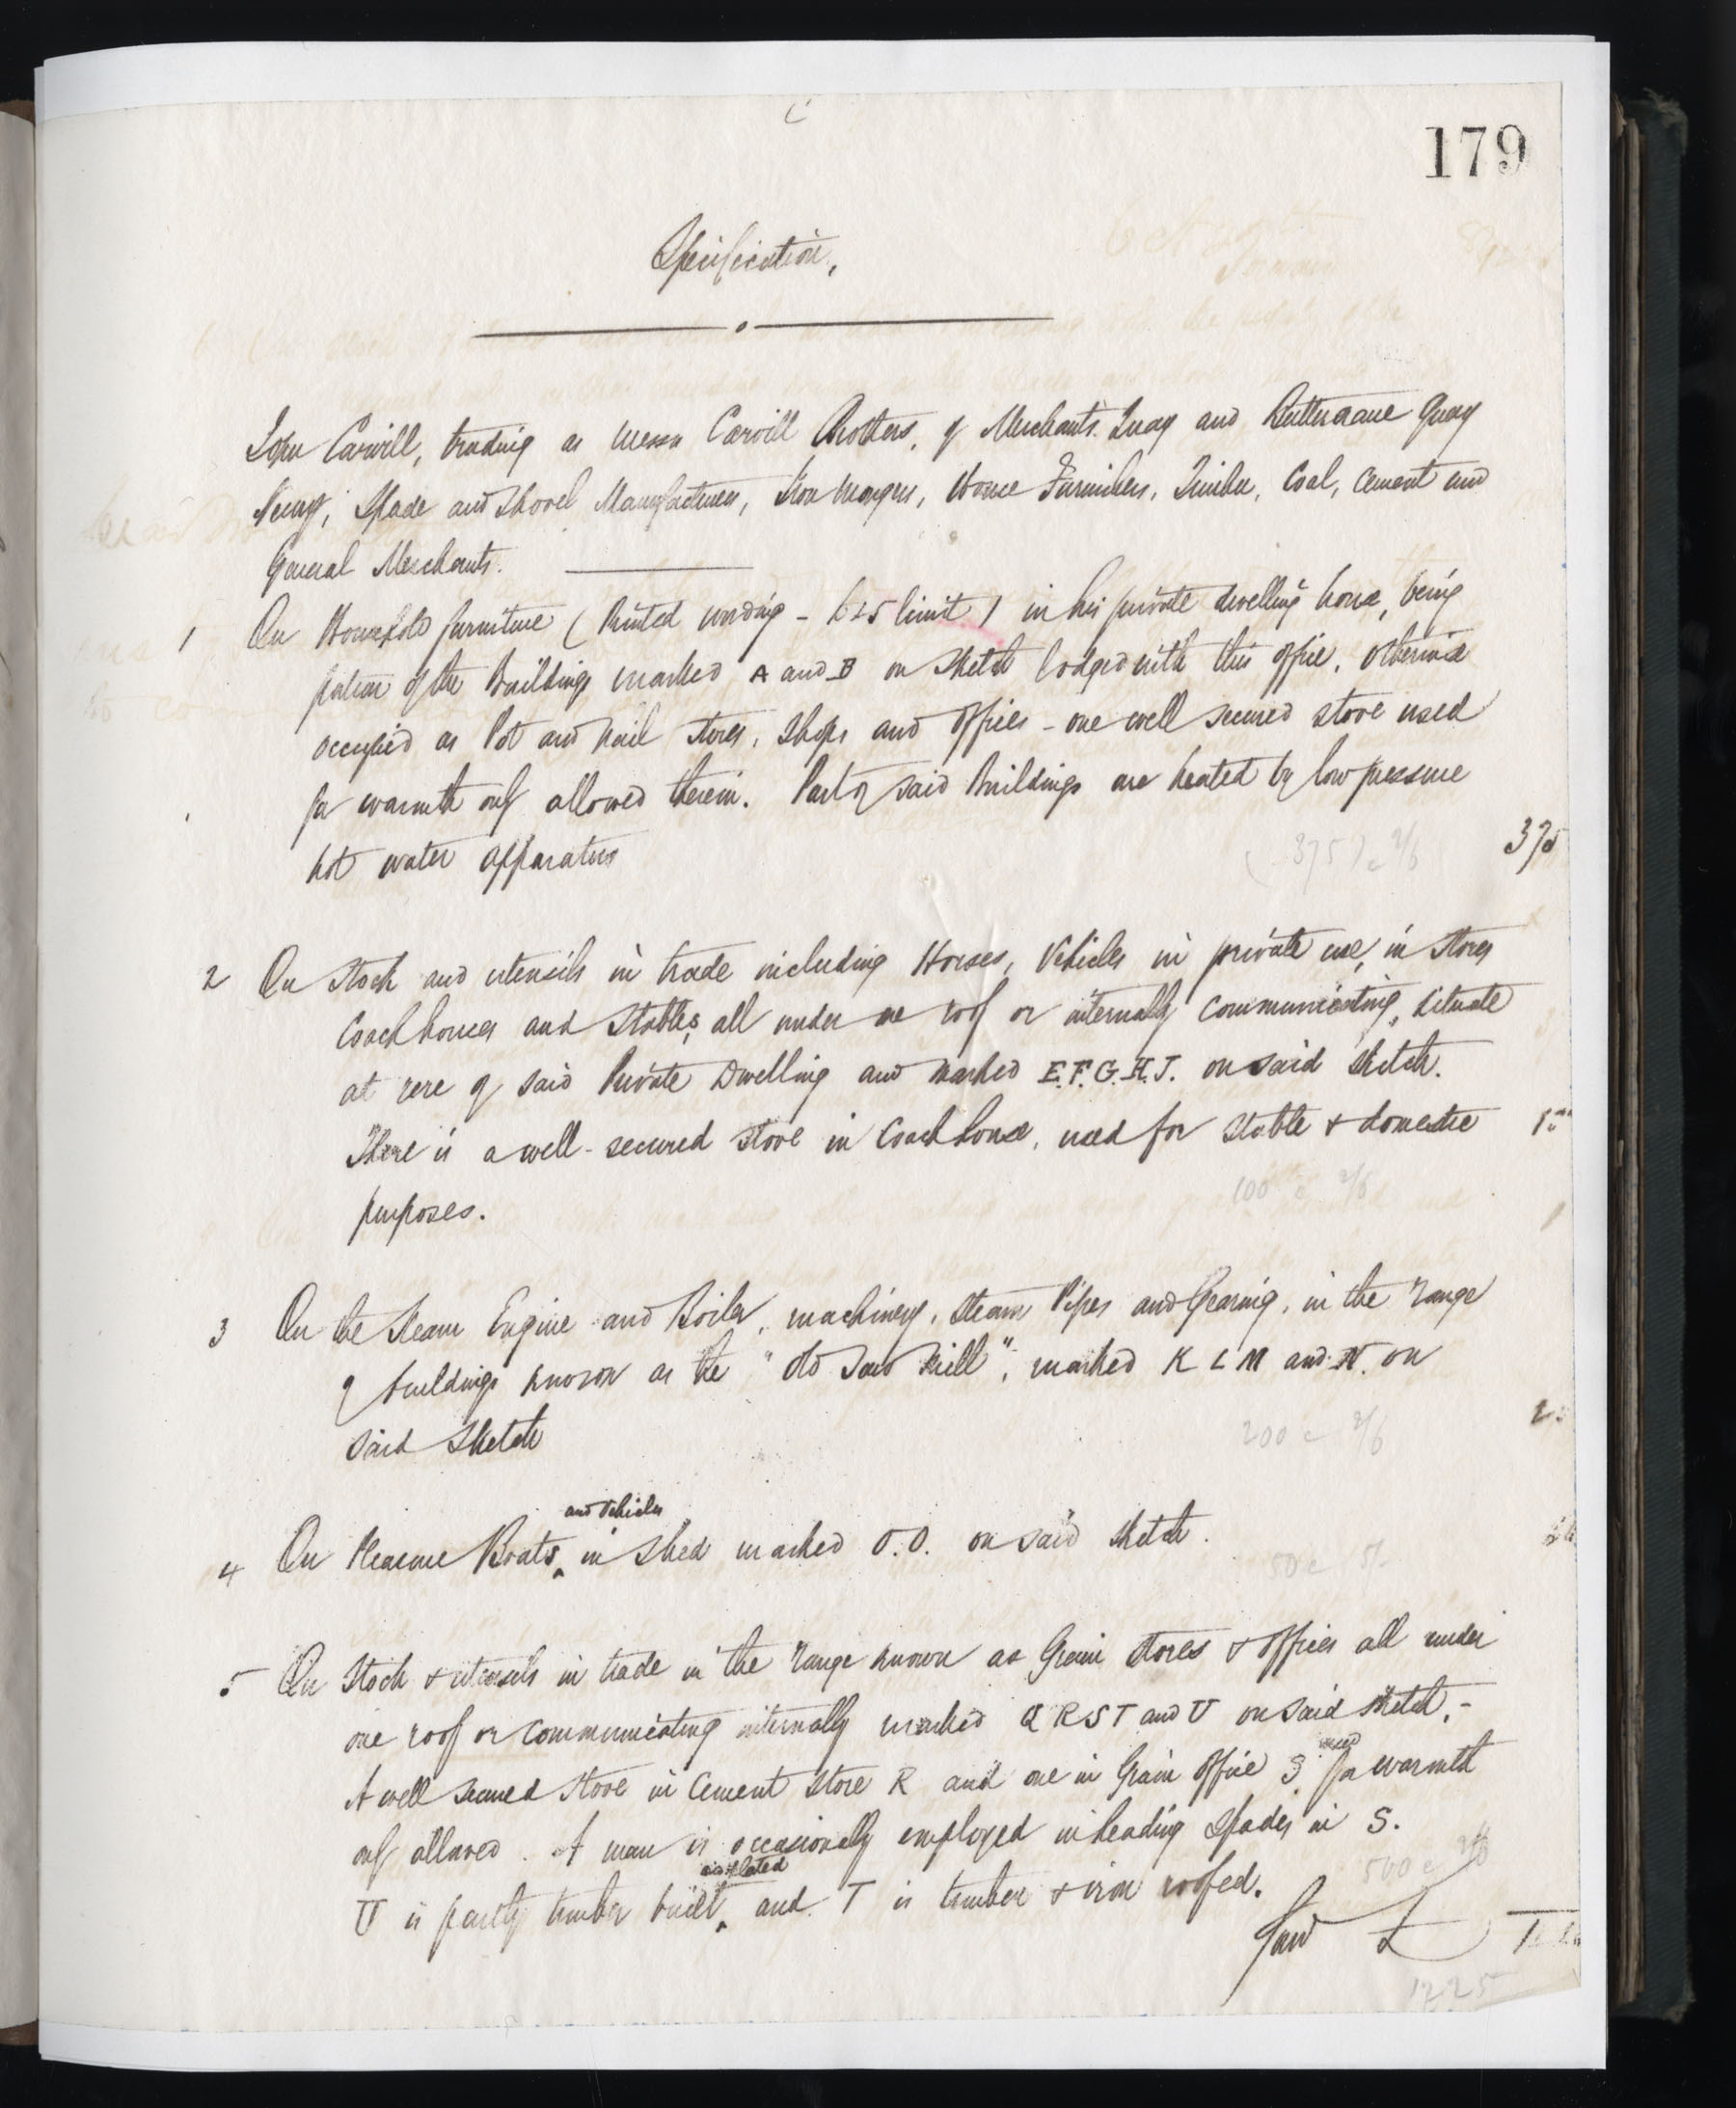 179
Specification.
John Carvill, trading as Messrs Carvill Brothers, of Merchants Quay and Buttercrane Quay
Newry, Spade and Shovel Manufacturers, Iron Mongers, House Furnishers, Timber, Coal, Cement and
General Merchants.
1 On Household furniture (Printed wording - £25 limit) in his private dwelling house, being
portion of the Buildings marked A and B on sketch lodged with this office, otherwise
occupied as Pot and Nail Stores, Shops and Offices - one well secured stove used
for warmth only allowed therein. Part of said Buildings are heated by low pressure
hot water apparatus 375
(375) c 2/6
2 On Stock and utensils in trade including Horses, Vehicles in private use, in Stores
Coach houses and Stables, all under one roof or internally communicating, situate
at rere of said Private Dwelling and marked E.F.G.H.J. on said sketch.
There is a well-secured stove in Coach house, used for stable & domestic
purposes.
100 c 2/6
3 On the Steam Engine and Boiler, machinery, Steam Pipes and Gearing, in the range
of buildings known as the "Old Saw Mill", marked K L M and N. on
said Sketch
200 c 2/6
and Vehicles
4 On Pleasure Boats, in Shed marked O.O. on said sketch.
50 c 5/-
5 On Stock & utensils in trade in the range known as Grain Stores & Offices all under
one roof or communicating internally marked Q R S T and U on said sketch. -
used
A well secured stove in Cement Store R and one in Grain Office S for warmth
only allowed. A man is occasionally employed in heading Spades in S.
U is partly timber built, and T is timber & iron roofed.
500 c 2/6
£
1225